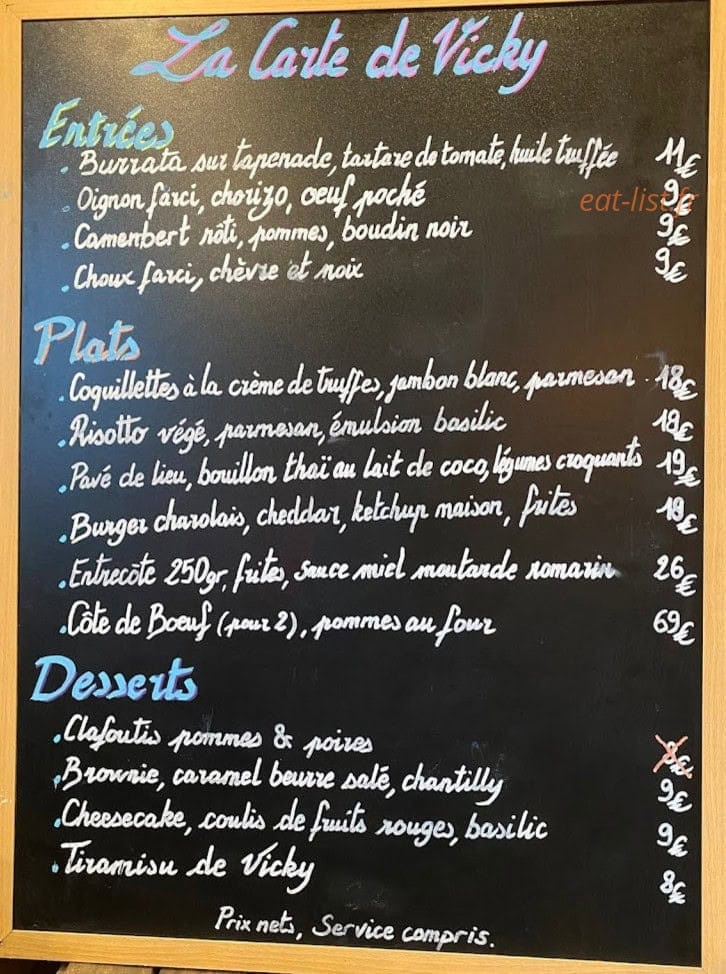 La Carte de Vicky
Entrées
. Burrata sur tapenade, tartare de tomate, huile truffée 11€
. Oignon farci, chorizo, oeuf poché 9€
eat-list.fr
. Camenbert rôti, pommes, boudin noir 9€
. Choux farci, chèvre et noix 9€
Plats
. Coquillettes à la crème de truffes, jambon blanc, parmesan . 18€
. Risotto végé, parmesan, émulsion basilic 18€
. Pavé de lieu, bouillon thaï au lait de coco, légumes croquants 19€
. Burger charolais, cheddar, ketchup maison, frites 19€
. Entrecôte 250gr, frites, sauce miel moutarde romarin 26€
. Côte de Boeuf (pour 2), pommes au four 69€
Desserts
. Clafoutis pommes & poires 8€
. Brownie, caramel beurre salé, chantilly 9€
. Cheesecake, coulis de fruits rouges, basilic 9€
. Tiramisu de Vicky 8€
Prix nets, Service compris.